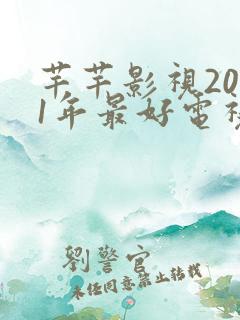 芊芊影視20
1年最好電視
劉警官
未經同意禁止轉載